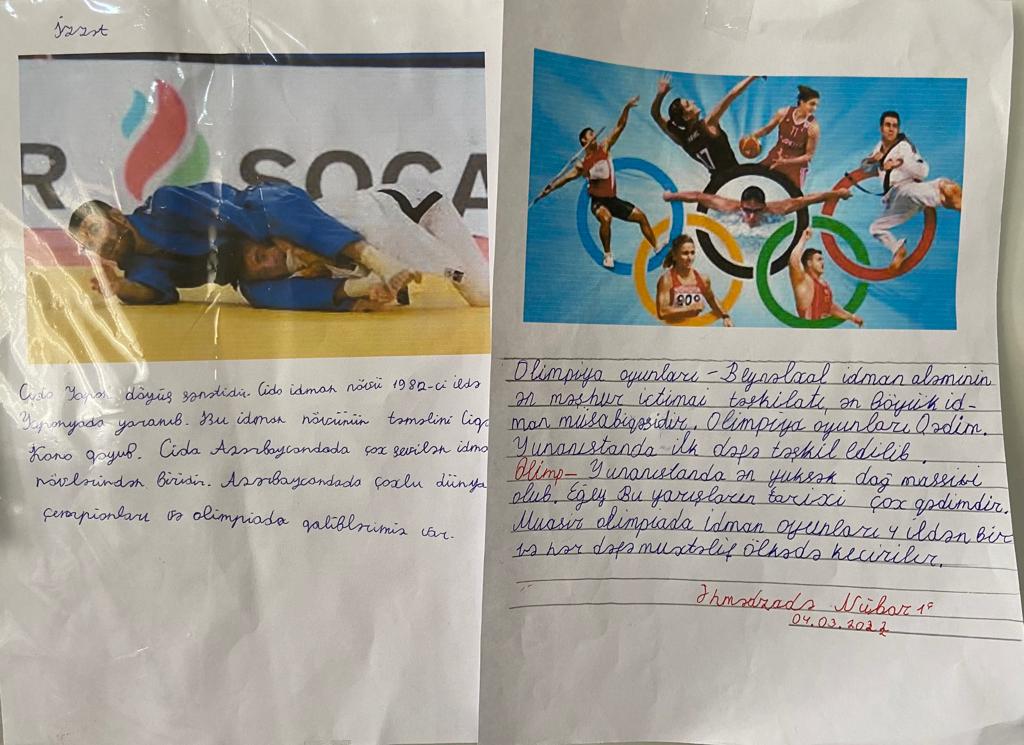 İzzət
R SOCA
Cüdo Yapon döyüş sənətidir. Cüdo idman növü 1982-ci ildə
Yaponyada yaranıb. Bu idman növünün təməlini
Kano qoyub. Cüdo Azərbaycandada çox sevilən idma
növlərindən biridir. Azərbaycandada çoxlu dünya
çempionları və olimpiada qaliblərimiz var.
17
11
909
Olimpiya oyunları – Beynəlxal idman aləminin
ən məşhur ictimai təşkilatı, ən böyük id-
man müsabiqəsidir. Olimpiya oyunları Qədim.
Yunanıstanda ilk dəfə təşkil edilib.
Olimp – Yunanıstanda ən yüksək dağ massivi
olub. Egey Bu yarışların tarixi çox qədimdir.
Muasir olimpiada idman oyunları 4 ildən bir
və hər dəfə muxtəlif ölkədə kecirilir.
Əhmədzadə Nübar 1ᶜ
04.03.2022